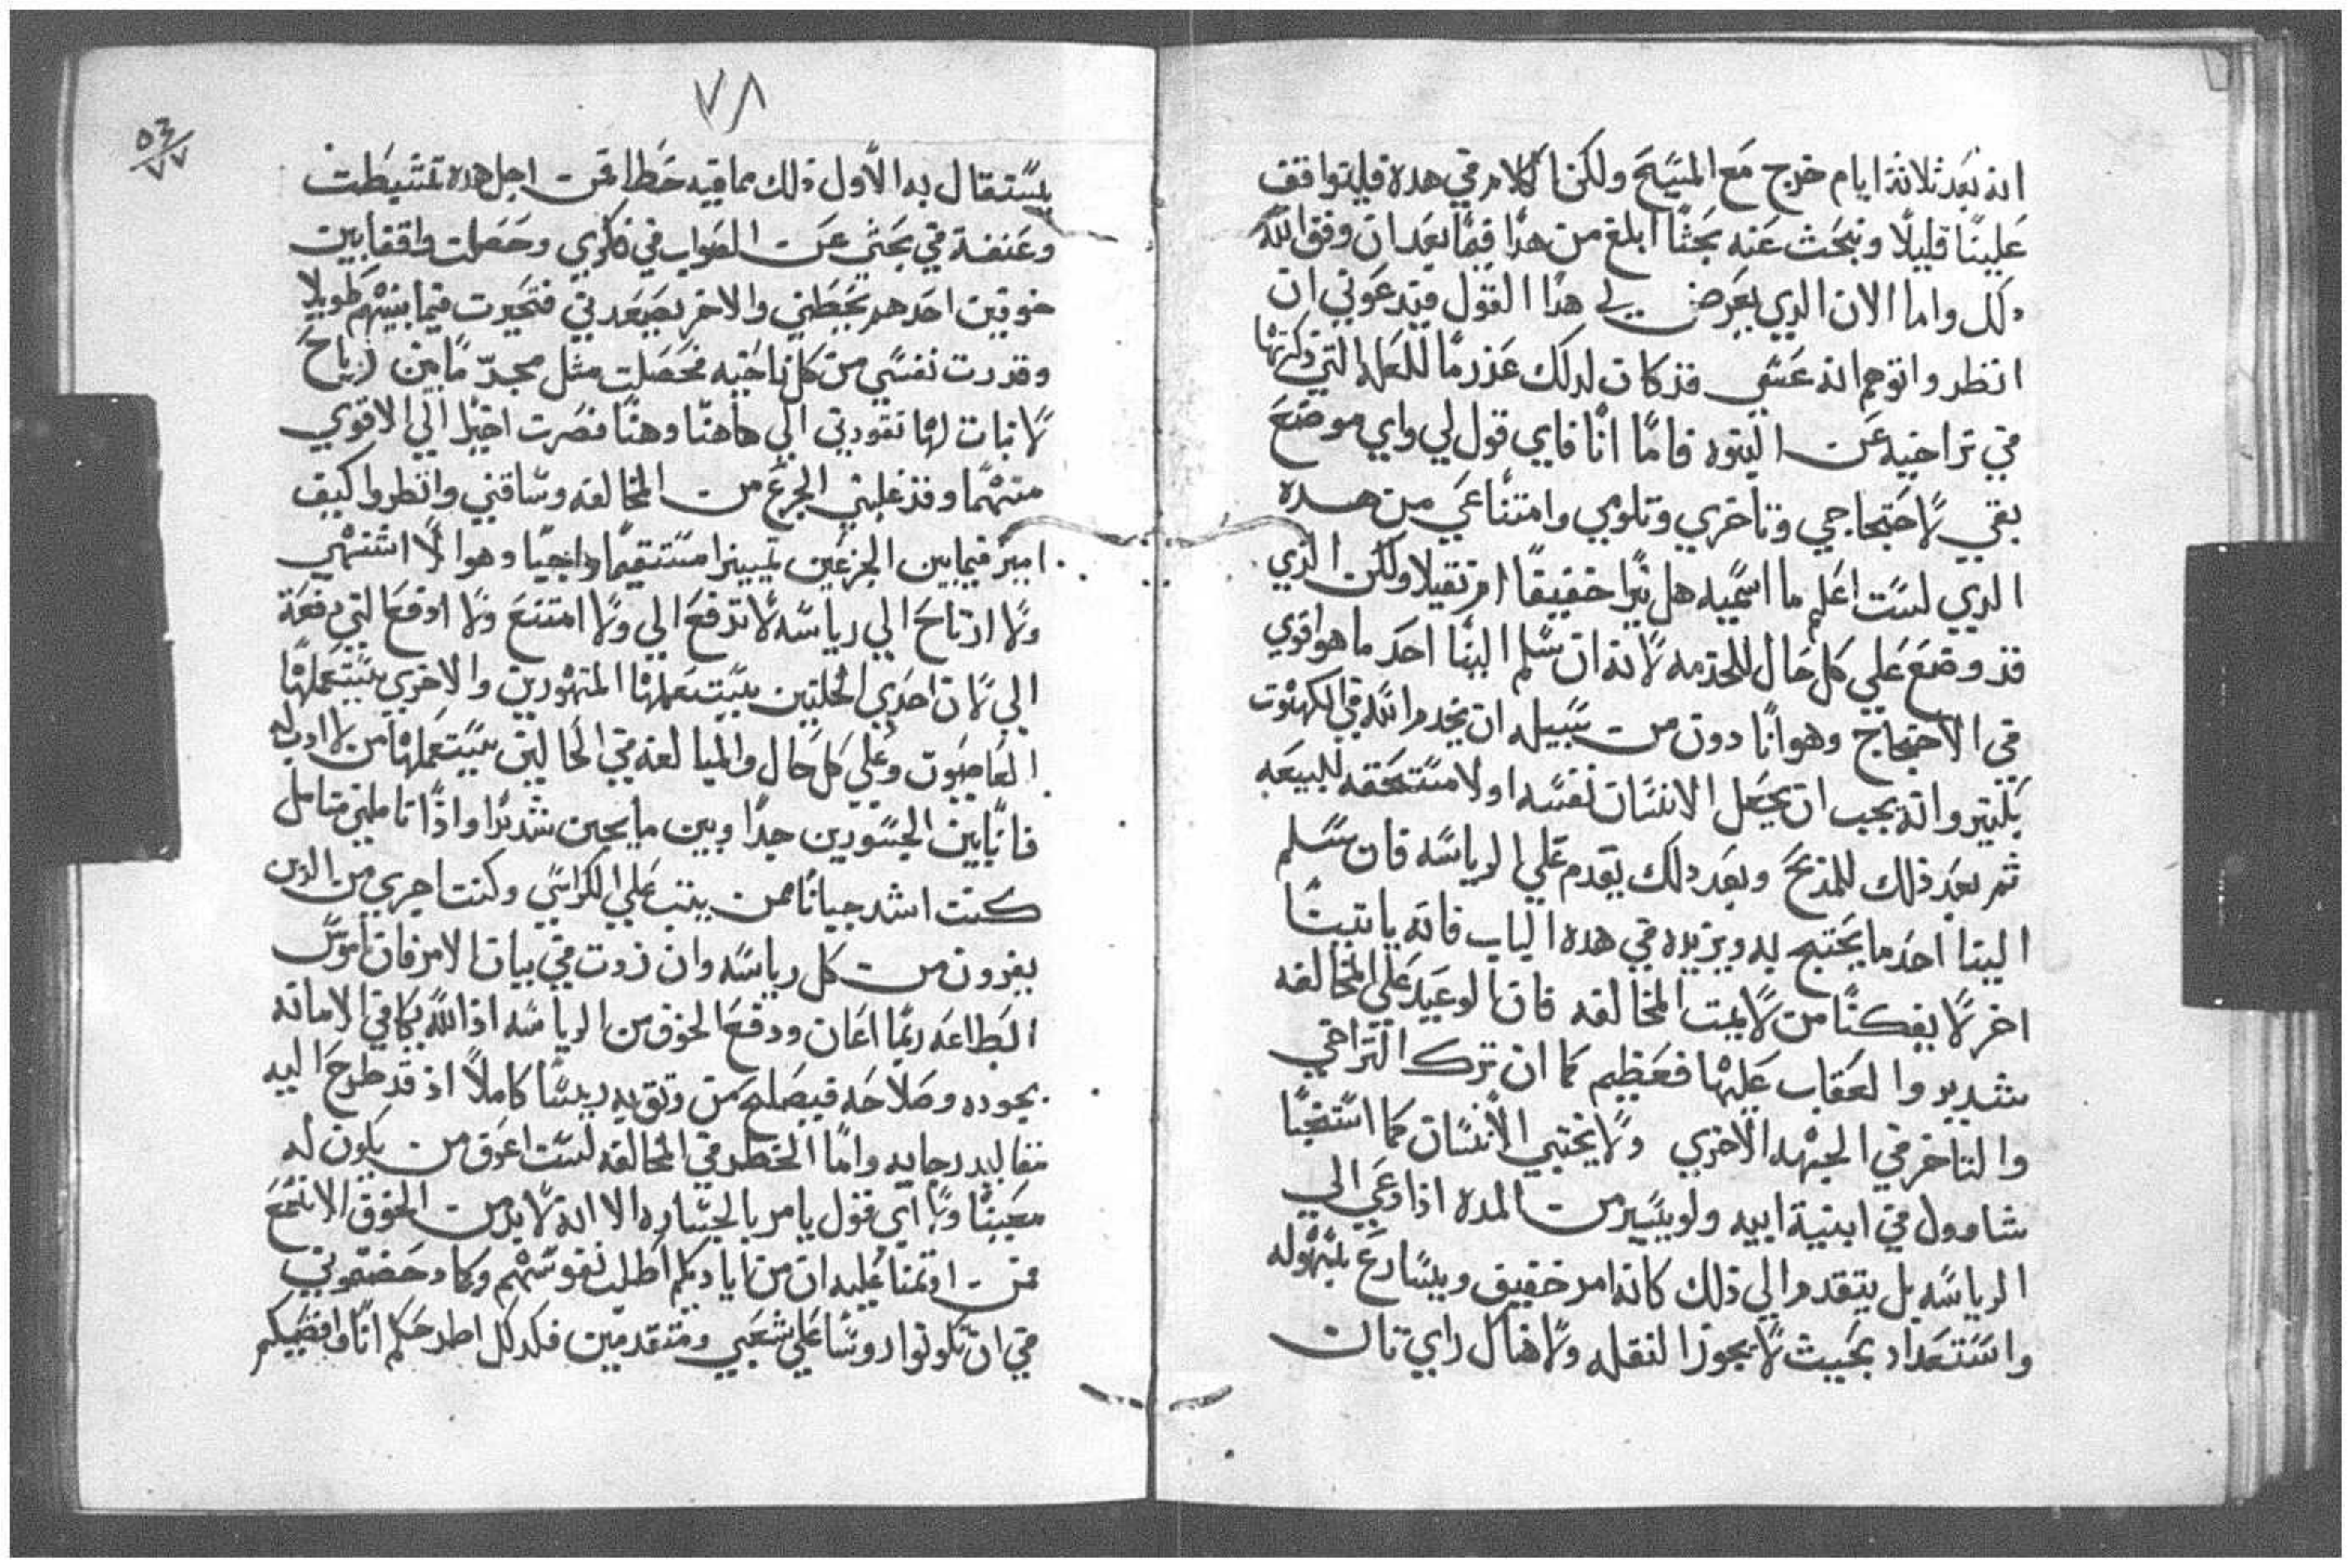 انه بعد ثلاثة ايام خرج مع المسيح ولكن الكلام في هده فليتواقف
علينا قليلا ونبحث عنه بحثا ابلغ من هدا فيما بعد ان وفق الله
دلك واما الان الدي يعرض لي هدا القول فيدعوني ان
انظر واتوهم انه عسي قد كان لدلك عذر ما للعله التي دكرتها
في تراخيه عن النبوه فاما انا فاي قول لي واي موضع
بقي لاحتجاجي وتاخري وتلومي وامتناعي من هده
الدي لست اعلم ما اسميه هل نيرا خفيفا ام تقيلا ولكن الدي
قد وضع علي كل حال للخدمه لانه ان سلم الينا احد ما هو اقوي
في الاحتجاج وهو انا دون من سبيله ان يخدم الله في الكهنوت
بكتير وانه يجب ان يجعل الانسان نفسه اولا مستحقه للبيعه
ثم بعد ذلك للمذبح وبعد دلك يقدم علي الرياسه فان سلم
الينا احد ما يحتج به ويزيده في هده الباب فانه ياتينا
اخر لا يفكنا من لايمت المخالفه فان الوعيد علي المخالفه
شديد والعقاب عليها فعظيم كما ان ترك التراخي
والتاخر في الجهه الاخري ولا يختبي الانسان كما استخبا
شاوول في ابنية ابيه ولو يسير من المده اذا دعي الي
الرياسه بل يتقدم الي ذلك كانه امر خفيف ويسارع بسهوله
واستعداد بحيث لا يجوز النقله ولا هناك راي تان
٧٨
٥٣
٧٧
يستقال به الاول ذلك مما فيه خطا فمن اجل هده تشيطت
وعنفة في بحثي عن الصواب في فكري وحصلت واقفا بين
خوفين احدهم يحبطني والاخر يصعدني فتحيرت فيما بينهم طويلا
وقدرت نفسي من كل ناحيه فحصلت مثل مجد ما بين رياح
لا ثبات لها تقودني الي هاهنا وهنا فصرت اخيرا الي الاقوي
منهما وقد غلبني الجزع من المخالفه وساقني وانظروا كيف
اميز فيما بين الجزعين تمييزا مستقيما واجبا وهو الا اشتهي
ولا ارتاح الي رياسه لا تدفع الي ولا امتنع ولا ادفع التي دفعة
الي لان احدي الخلتين يستعملها المتهورين والاخري يستعملها
العاصيون وعلي كل حال والمبالغه في الحالين يستعملها من لا ادب له
فانا بين الجسورين جدا وبين ما يجبن شديدا واذا تاملني متامل
كنت اشد جبانا ممن يتب علي الكراسي وكنت اجري من الدين
يفرون من كل رياسه وان زدت في بيان الامر فان ناموس
الطاعه ربما اعان ودفع الخوف من الرياسه اذ الله يكافي الامانه
بجوده وصلاحه فيصلح من وتق به رييسا كاملا اذ قد طرح اليه
مقاليد رجايه واما الخطر في المخالفه لست اعرف من يكون له
معينا ولا اي قول يامر بالجساره الا انه لا بد من الخوف الا نسمع
فمن اوتمنا عليه ان من اياديكم اطلب نفوسهم وكما دحضتموني
في ان تكونوا روسا علي شعبي ومتقدمين فكدلك اطرحكم انا واقصيكم